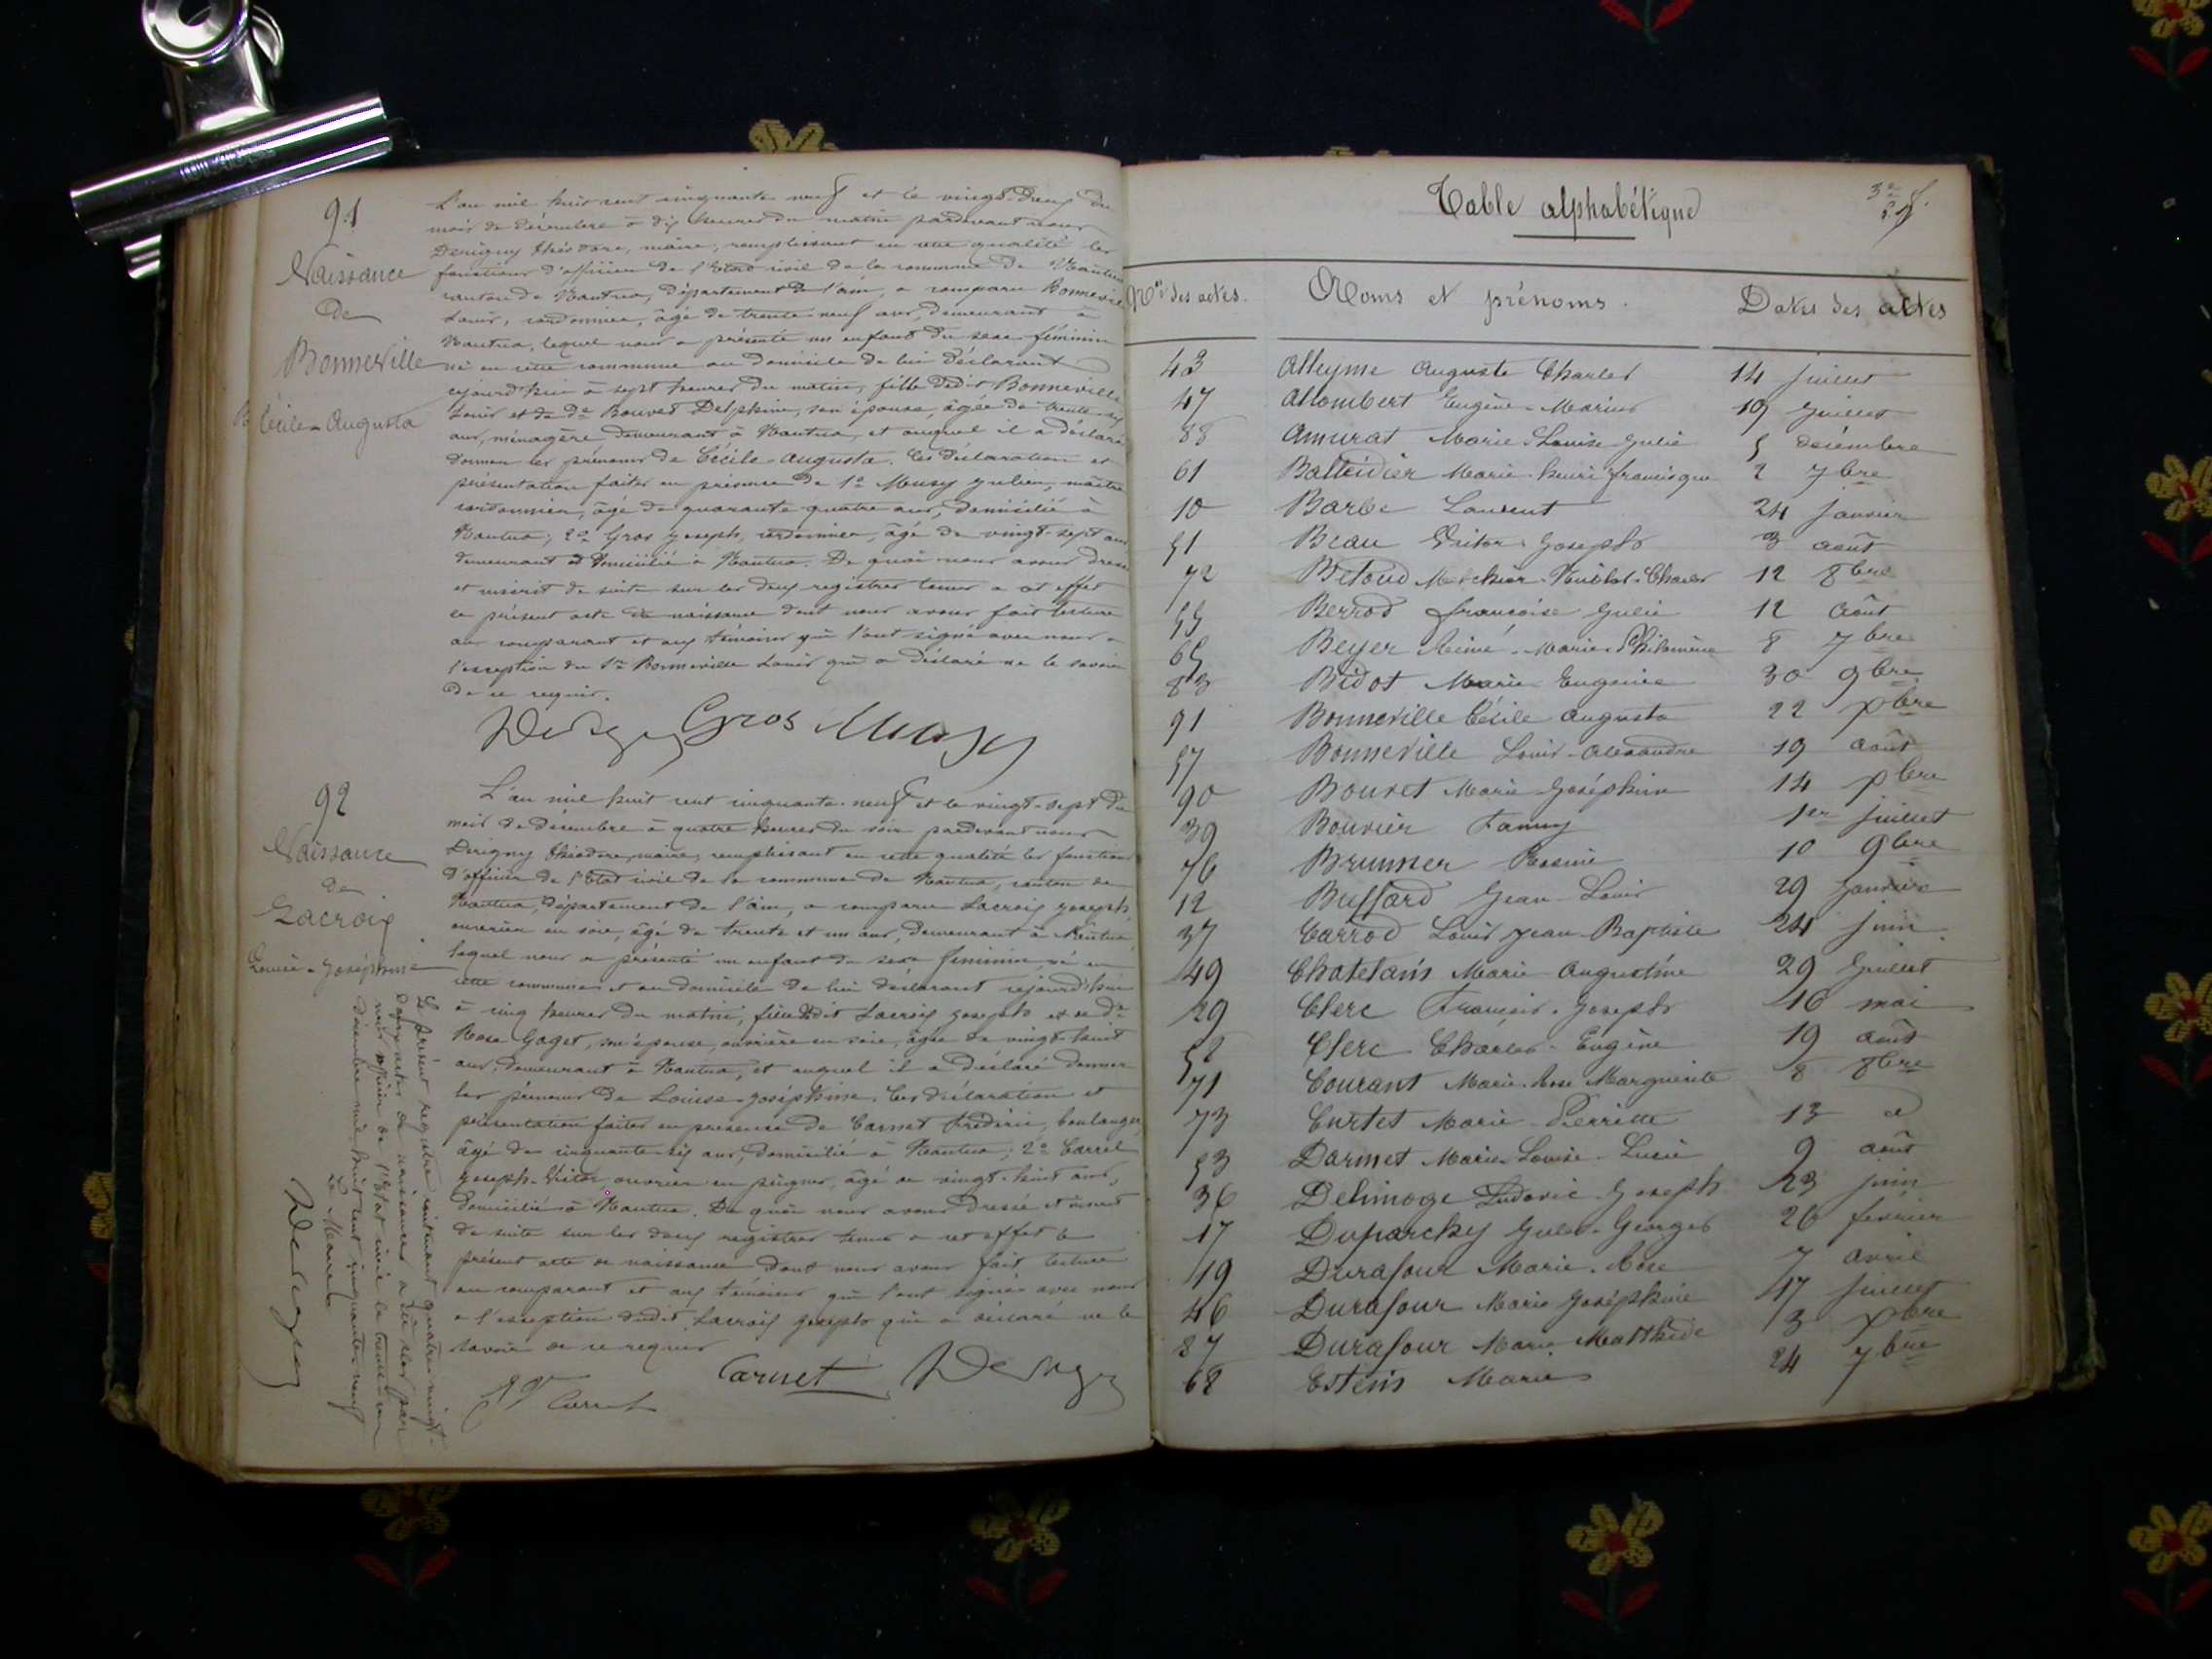 91
Naissance
de
Bonneville
Cécile-Augusta
L'an mil huit cent cinquante neuf et le vingt-deux du
mois de décembre à dix heures du matin pardevant nous
Derigny théodore, maire, remplissant en cette qualité les
fonctions d'officier de l'Etat civil de la commune de Nantua
canton de Nantua, département de l'ain, a comparu Bonneville
Louis, cordonnier, âgé de trente-neuf ans, demeurant à
Nantua, lequel nous a présenté un enfant du sexe féminin
né en cette commune au domicile de lui déclarant
cejourd'hui à sept heures du matin, fille dudit Bonneville
Louis et de de Bouvet Delphine, son épouse, âgée de trente-six
ans, ménagère demeurant à Nantua, et auquel il a déclaré
donner les prénoms de Cécile-augusta. Ces déclaration et
présentation faites en présence de 1o Musy julien, maître
cordonnier, âgé de quarante-quatre ans, domicilié à
Nantua; 2o Gros joseph, cordonnier, âgé de vingt-sept ans
demeurant et domicilié à Nantua. De quoi nous avons dressé
et inscrit de suite sur les deux registres tenus à cet effet
le présent acte de naissance dont nous avons fait lecture
au comparant et aux témoins qui l'ont signé avec nous à
l'exception du sr Bonneville Louis qui a déclaré ne le savoir
de ce requis.
Gros Musy
92
Naissance
de
Lacroix
Louise-Joséphine
L'an mil huit cent cinquante-neuf et le vingt-sept du
mois de décembre à quatre heures du soir pardevant nous
Derigny théodore, maire, remplissant en cette qualité les fonctions
d'officier de l'Etat civil de la commune de Nantua, canton de
Nantua, département de l'ain, a comparu Lacroix joseph,
ouvrier en soie, âgé de trente et un ans, demeurant à Nantua,
lequel nous a présenté un enfant du sexe féminin né en
cette commune et au domicile de lui déclarant cejourd'hui
à cinq heures du matin, fille dudit Lacroix joseph et de de
Rose Gaget, son épouse, ouvrière en soie, âgée de vingt-huit
ans, demeurant à Nantua, et auquel il a déclaré donner
les prénoms de Louise-joséphine. Ces déclaration et
présentation faites en présence de Carnet frédéric, boulanger,
âgé de cinquante-six ans, domicilié à Nantua; 2o
joseph-Victor, ouvrier en peignes, âgé de vingt-huit ans,
domicilié à Nantua. De quoi nous avons dressé et inscrit
de suite sur les deux registres tenus à cet effet le
présent acte de naissance dont nous avons fait lecture
au comparant et aux témoins qui l'ont signé avec nous
à l'exception dudit Lacroix joseph qui a déclaré ne le
savoir de ce requis
Carnet
Le présent registre contenant quatre-vingt-
douze actes de naissances a été clos par
nous officier de l'Etat civil le trente-un
décembre mil huit cent cinquante-neuf
Le Maire
Table alphabétique
Nos des actes. Noms et prénoms. Dates des actes
43 Alleyme Auguste Charles 14 juillet
47 Allombert Eugène-Marius 19 juillet
88 Amurat Marie Louise Julie 5 décembre
61 Balleidier Marie-henri françisque 2 7bre
10 Barbe Laurent 24 janvier
51 Beau Victor-Joseph 3 août
72 12 8bre
55 Berrod françoise Julie 12 août
65 Beyer Aimé-Marie-Philomène 8 7bre
83 Bidot Marie Eugénie 30 9bre
91 Bonneville Cécile augusta 22 Xbre
57 Bonneville Louis-Alexandre 19 août
90 Bouvet Marie Joséphine 14 Xbre
39 Bouvier Fanny 1er juillet
76 Brunner Rosine 10 9bre
12 Buffard Jean-Louis 29 Janvier
37 Carrod Louis Jean-Baptiste 24 juin
49 Chatelain Marie Augustine 29 Juillet
29 Clerc François-Joseph 16 mai
58 Clerc Charles-Eugène 19 août
71 Courant Marie-Rose Marguerite 8 8bre
73 Curtet Marie-Pierrette 13 d
53 Darmet Marie Louise-Lucie 9 août
36 Delimoge Ludovic-Joseph 23 juin
17 Duparchy Jules-Georges 26 février
19 Durafour Marie-Rose 7 avril
46 Durafour Marie Joséphine 17 juillet
87 Durafour Marie Matthilde 3 Xbre
68 Estenis Marie 24 7bre